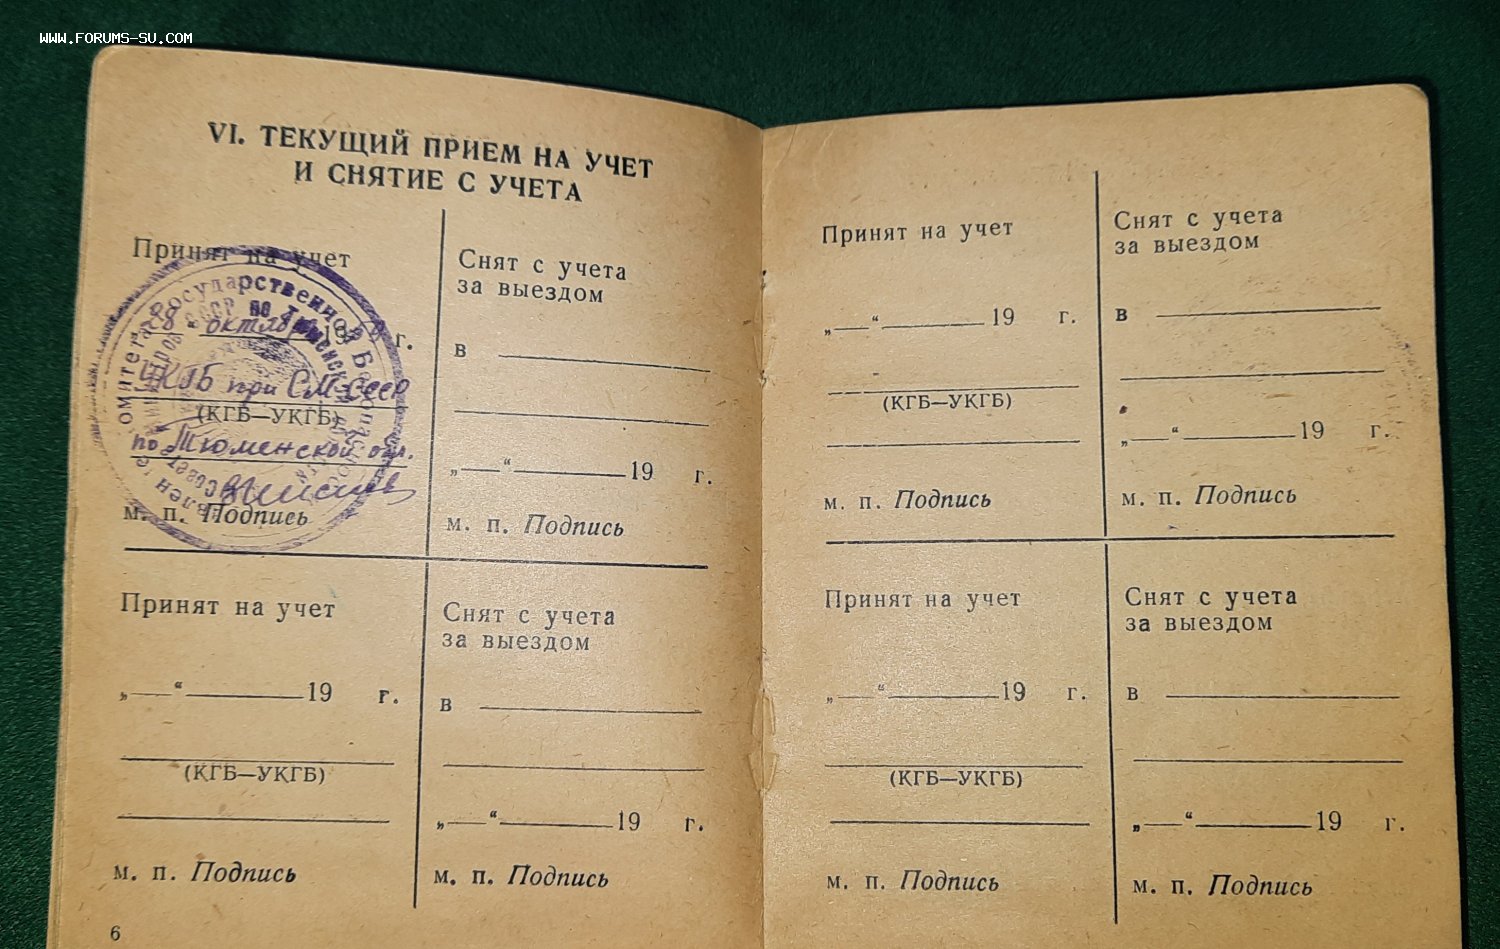 WWW.FORUMS-SU.COM
VI. ТЕКУЩИЙ ПРИЕМ НА УЧЕТ
И СНЯТИЕ С УЧЕТА
Принят на учет
„28“ октября 19 г.
УКГБ при СМ СССР
(КГБ—УКГБ)
по Тюменской обл.
м. п. Подпись
Государственной Безопасности
по Тюменск
Снят с учета
за выездом
в
„ “ 19 г.
м. п. Подпись
Принят на учет
„ “ 19 г.
(КГБ—УКГБ)
м. п. Подпись
Снят с учета
за выездом
в
„ “ 19 г.
м. п. Подпись
6
Принят на учет
„ “ 19 г.
(КГБ—УКГБ)
м. п. Подпись
Снят с учета
за выездом
в
„ “ 19 г.
м. п. Подпись
Принят на учет
„ “ 19 г.
(КГБ—УКГБ)
м. п. Подпись
Снят с учета
за выездом
в
„ “ 19 г.
м. п. Подпись